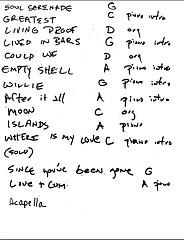 SOUL SERENADE G
GREATEST C piano intro
LIVING PROOF D org
LIVED IN BARS G piano intro
COULD WE D org
EMPTY SHELL A piano intro
WILLIE G piano intro
After it all A piano intro
MOON C org
ISLANDS A piano
WHERE IS MY LOVE C piano intro
(SOLO)
SINCE You've been gone G
LOVE + Comm. A piano
Acapella